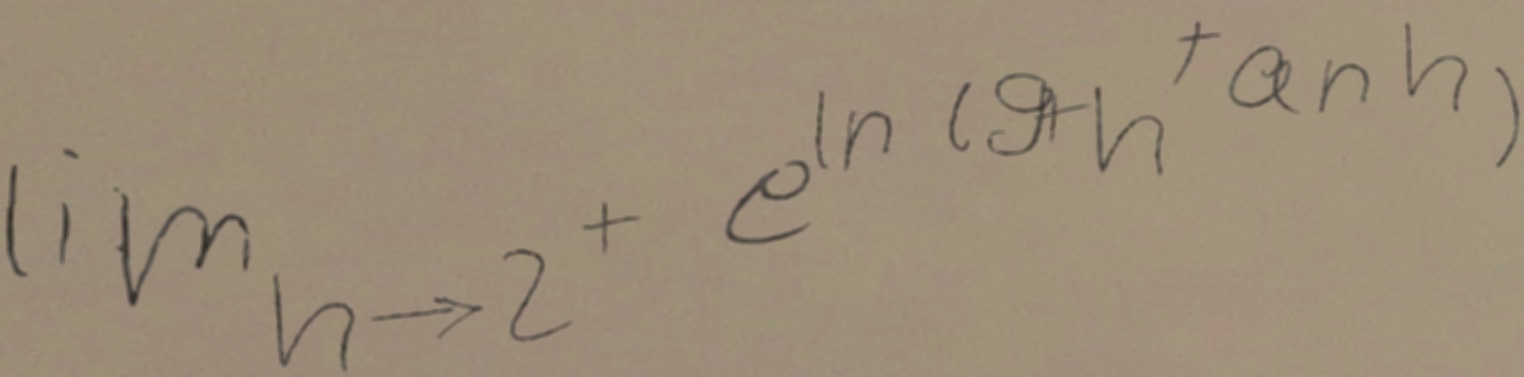 lim_{h→2^+} e^{ln(9h^{tan h})}